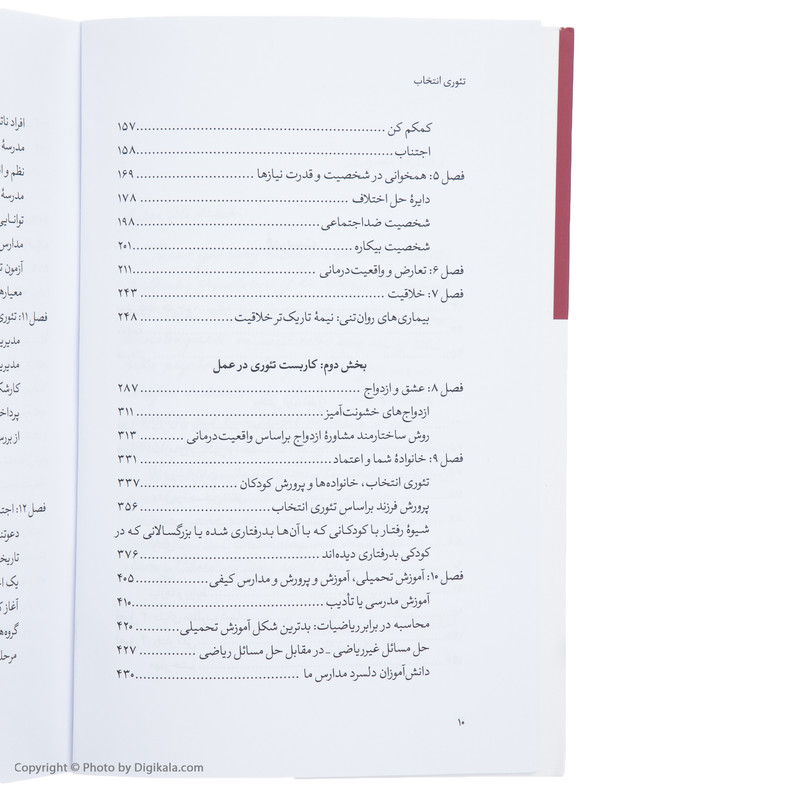 تئوری انتخاب
کمکم کن ............................................................ ۱۵۷
اجتناب ............................................................ ۱۵۸
فصل ۵: همخوانی در شخصیت و قدرت نیازها ............................ ۱۶۹
دایرهٔ حل اختلاف .................................................. ۱۷۸
شخصیت ضداجتماعی .............................................. ۱۹۸
شخصیت بیکاره ..................................................... ۲۰۱
فصل ۶: تعارض و واقعیت‌درمانی ............................................ ۲۱۱
فصل ۷: خلاقیت .......................................................... ۲۴۳
بیماری‌های روان‌تنی: نیمهٔ تاریک‌تر خلاقیت ....................... ۲۴۸
بخش دوم: کاربست تئوری در عمل
فصل ۸: عشق و ازدواج .................................................... ۲۸۷
ازدواج‌های خشونت‌آمیز .............................................. ۳۱۱
روش ساختارمند مشاورهٔ ازدواج براساس واقعیت‌درمانی ........... ۳۱۳
فصل ۹: خانوادهٔ شما و اعتماد ............................................... ۳۳۱
تئوری انتخاب، خانواده‌ها و پرورش کودکان ........................ ۳۳۷
پرورش فرزند براساس تئوری انتخاب ................................ ۳۵۶
شیوهٔ رفتار با کودکانی که با آن‌ها بدرفتاری شده یا بزرگسالانی که در
کودکی بدرفتاری دیده‌اند ............................................ ۳۷۶
فصل ۱۰: آموزش تحمیلی، آموزش و پرورش و مدارس کیفی .................. ۴۰۵
آموزش مدرسی یا تأدیب ............................................... ۴۱۰
محاسبه در برابر ریاضیات: بدترین شکل آموزش تحمیلی ........... ۴۲۰
حل مسائل غیرریاضی -در مقابل حل مسائل ریاضی .............. ۴۲۷
دانش‌آموزان دلسرد مدارس ما ........................................ ۴۳۰
۱۰
افراد
مدرسهٔ
نظم و
مدرسهٔ
توانایی
مدارس
آزمون
فصل ۱۱:
فصل ۱۲:
یک
آغاز
Copyright © Photo by Digikala.com